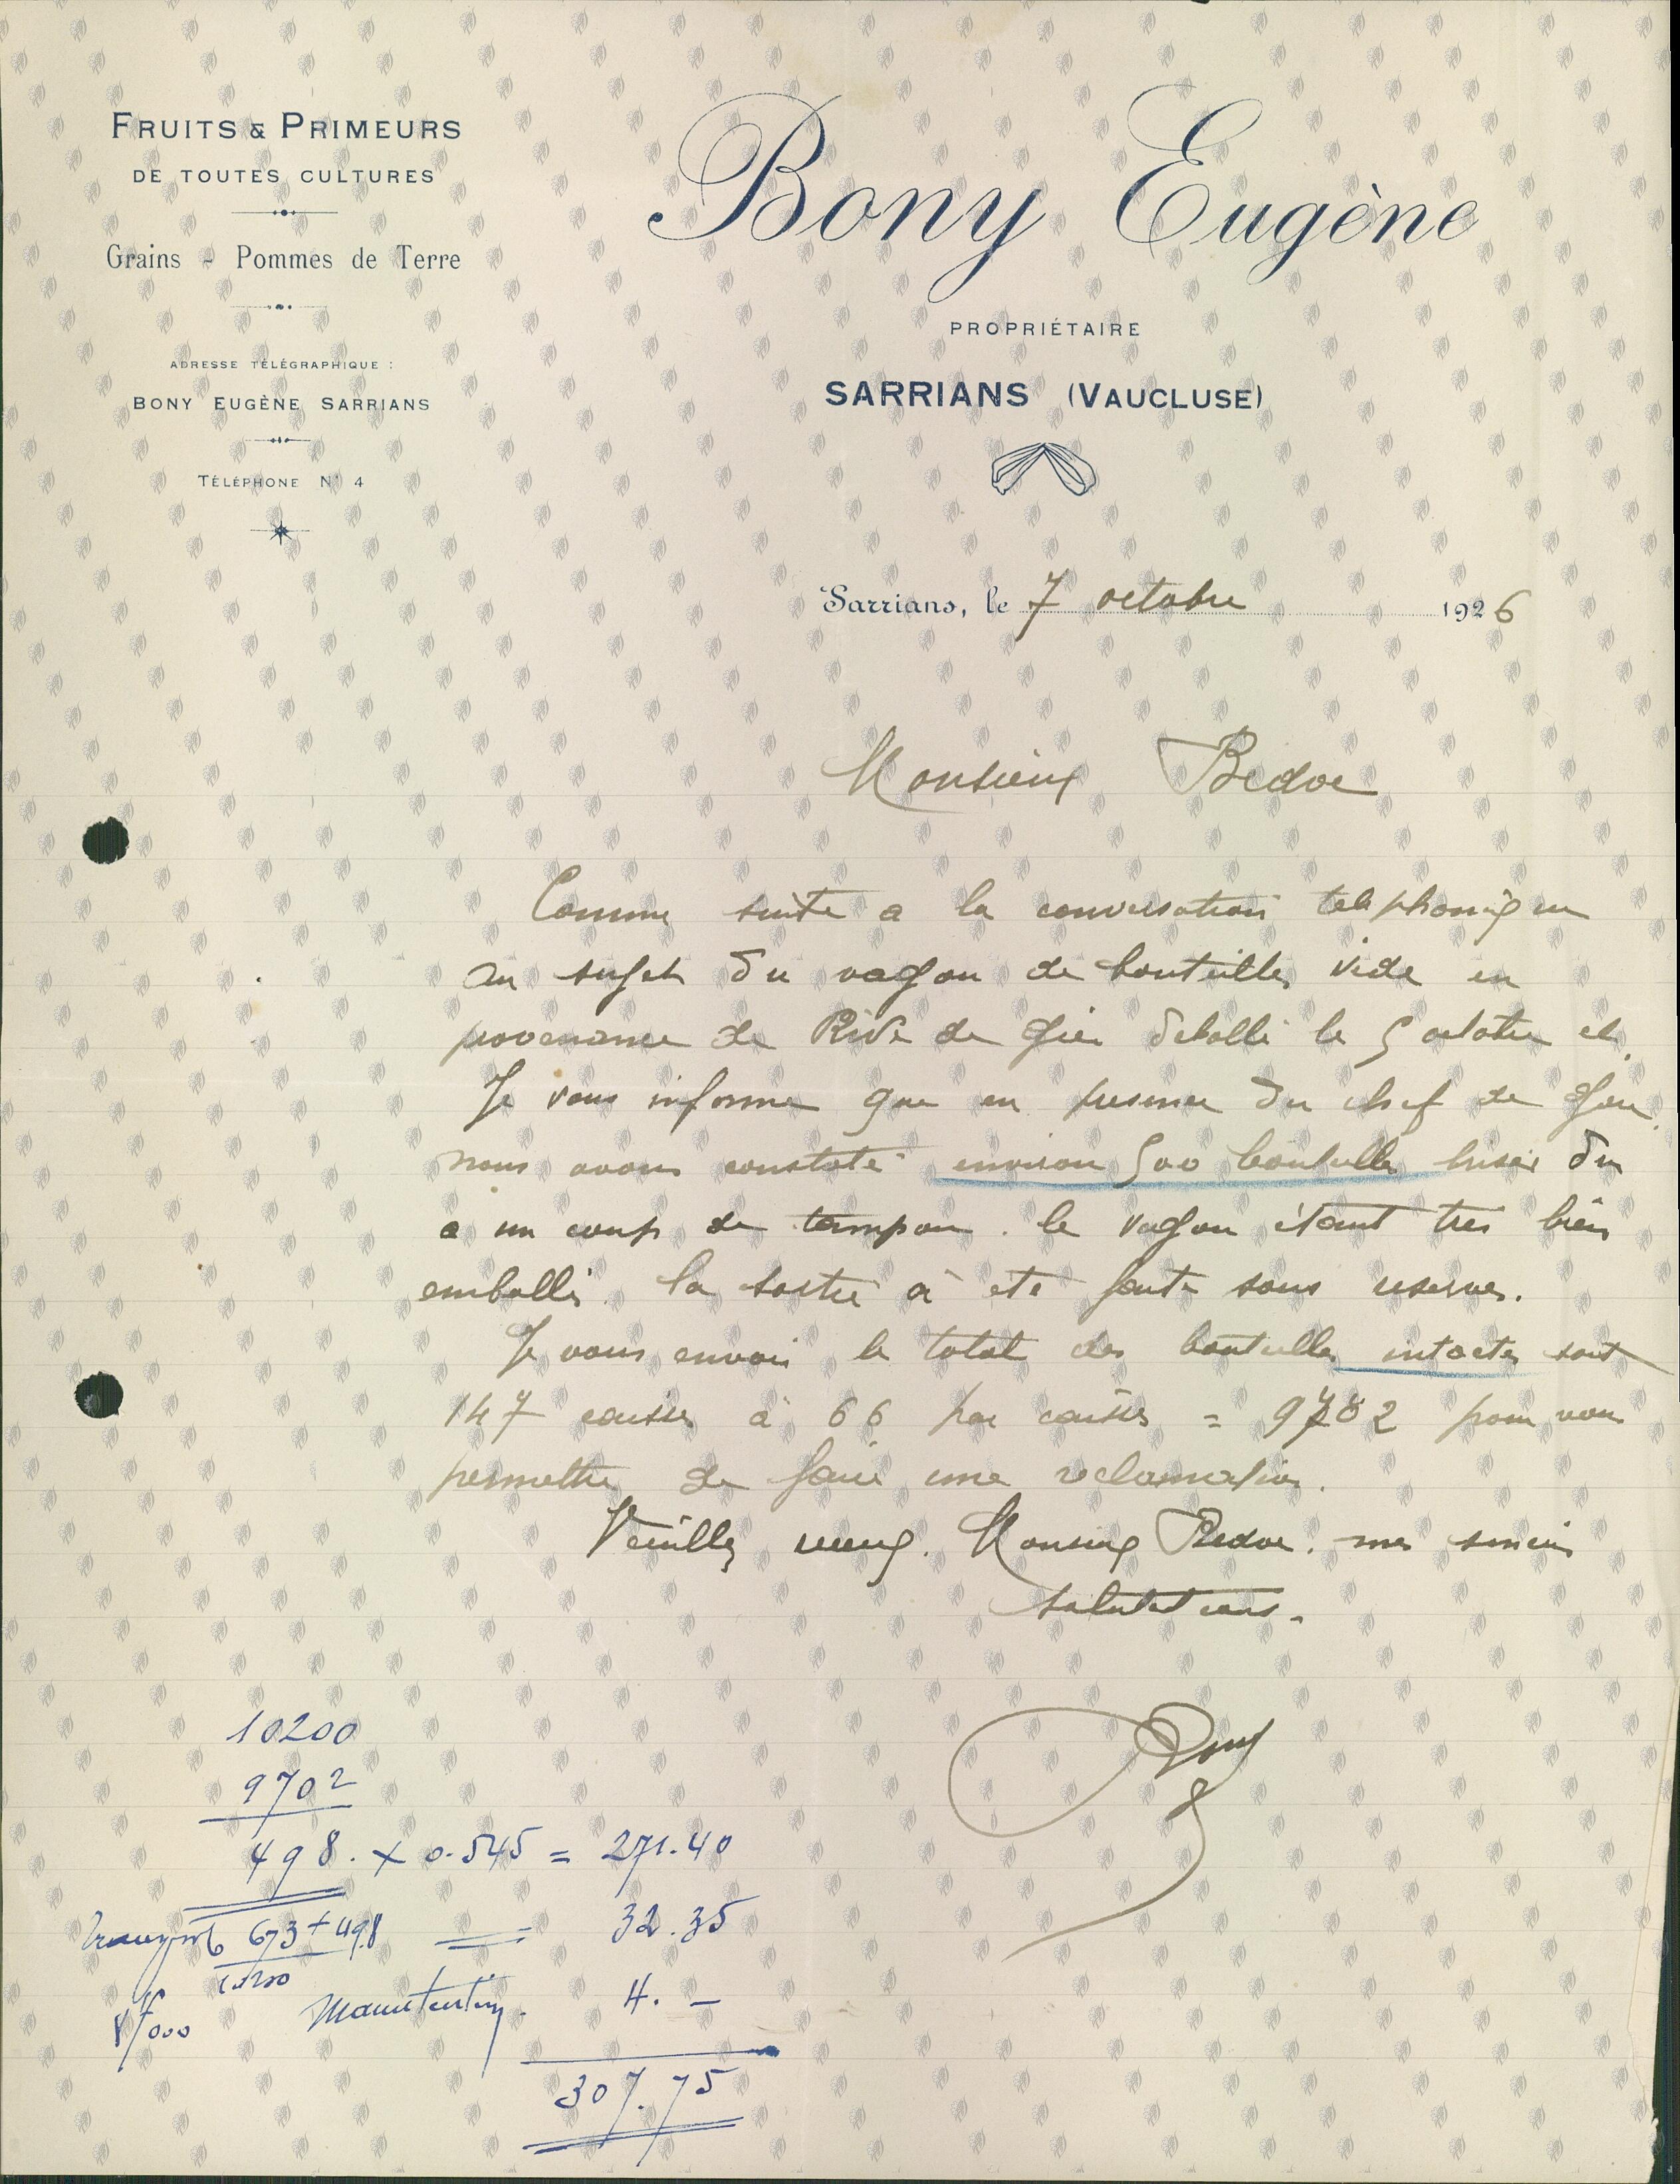 FRUITS & PRIMEURS
DE TOUTES CULTURES
Grains - Pommes de Terre
ADRESSE TÉLÉGRAPHIQUE :
BONY EUGÈNE SARRIANS
TÉLÉPHONE N° 4
Bony Eugène
PROPRIÉTAIRE
SARRIANS (VAUCLUSE)
Sarrians, le 7 octobre 1926
Monsieur Bedoc
Comme suite a la conversation telephonique
au sujet du vagon de bouteilles vide en
provenance de Rive de Gier deballé le 5 octobre
Je vous informe que en presence du chef de Gare
nous avons constaté environ 500 bouteilles brisés du
a un coup de tampon. le vagon étant tres bien
emballé. la sortie à eté faite sous reserves.
Je vous envoi le total des bouteilles intactes soit
147 caisses à 66 par caisses = 9702 pour vous
permettre de faire une reclamation.
Veuillez recevoir. Monsieur Bedoc. mes sincères
salutations.
Bony
10200
9702
498. x 0.545 = 271.40
Transport 673 + 498 = 32.35
10200
Manutention. 4. -
307.75